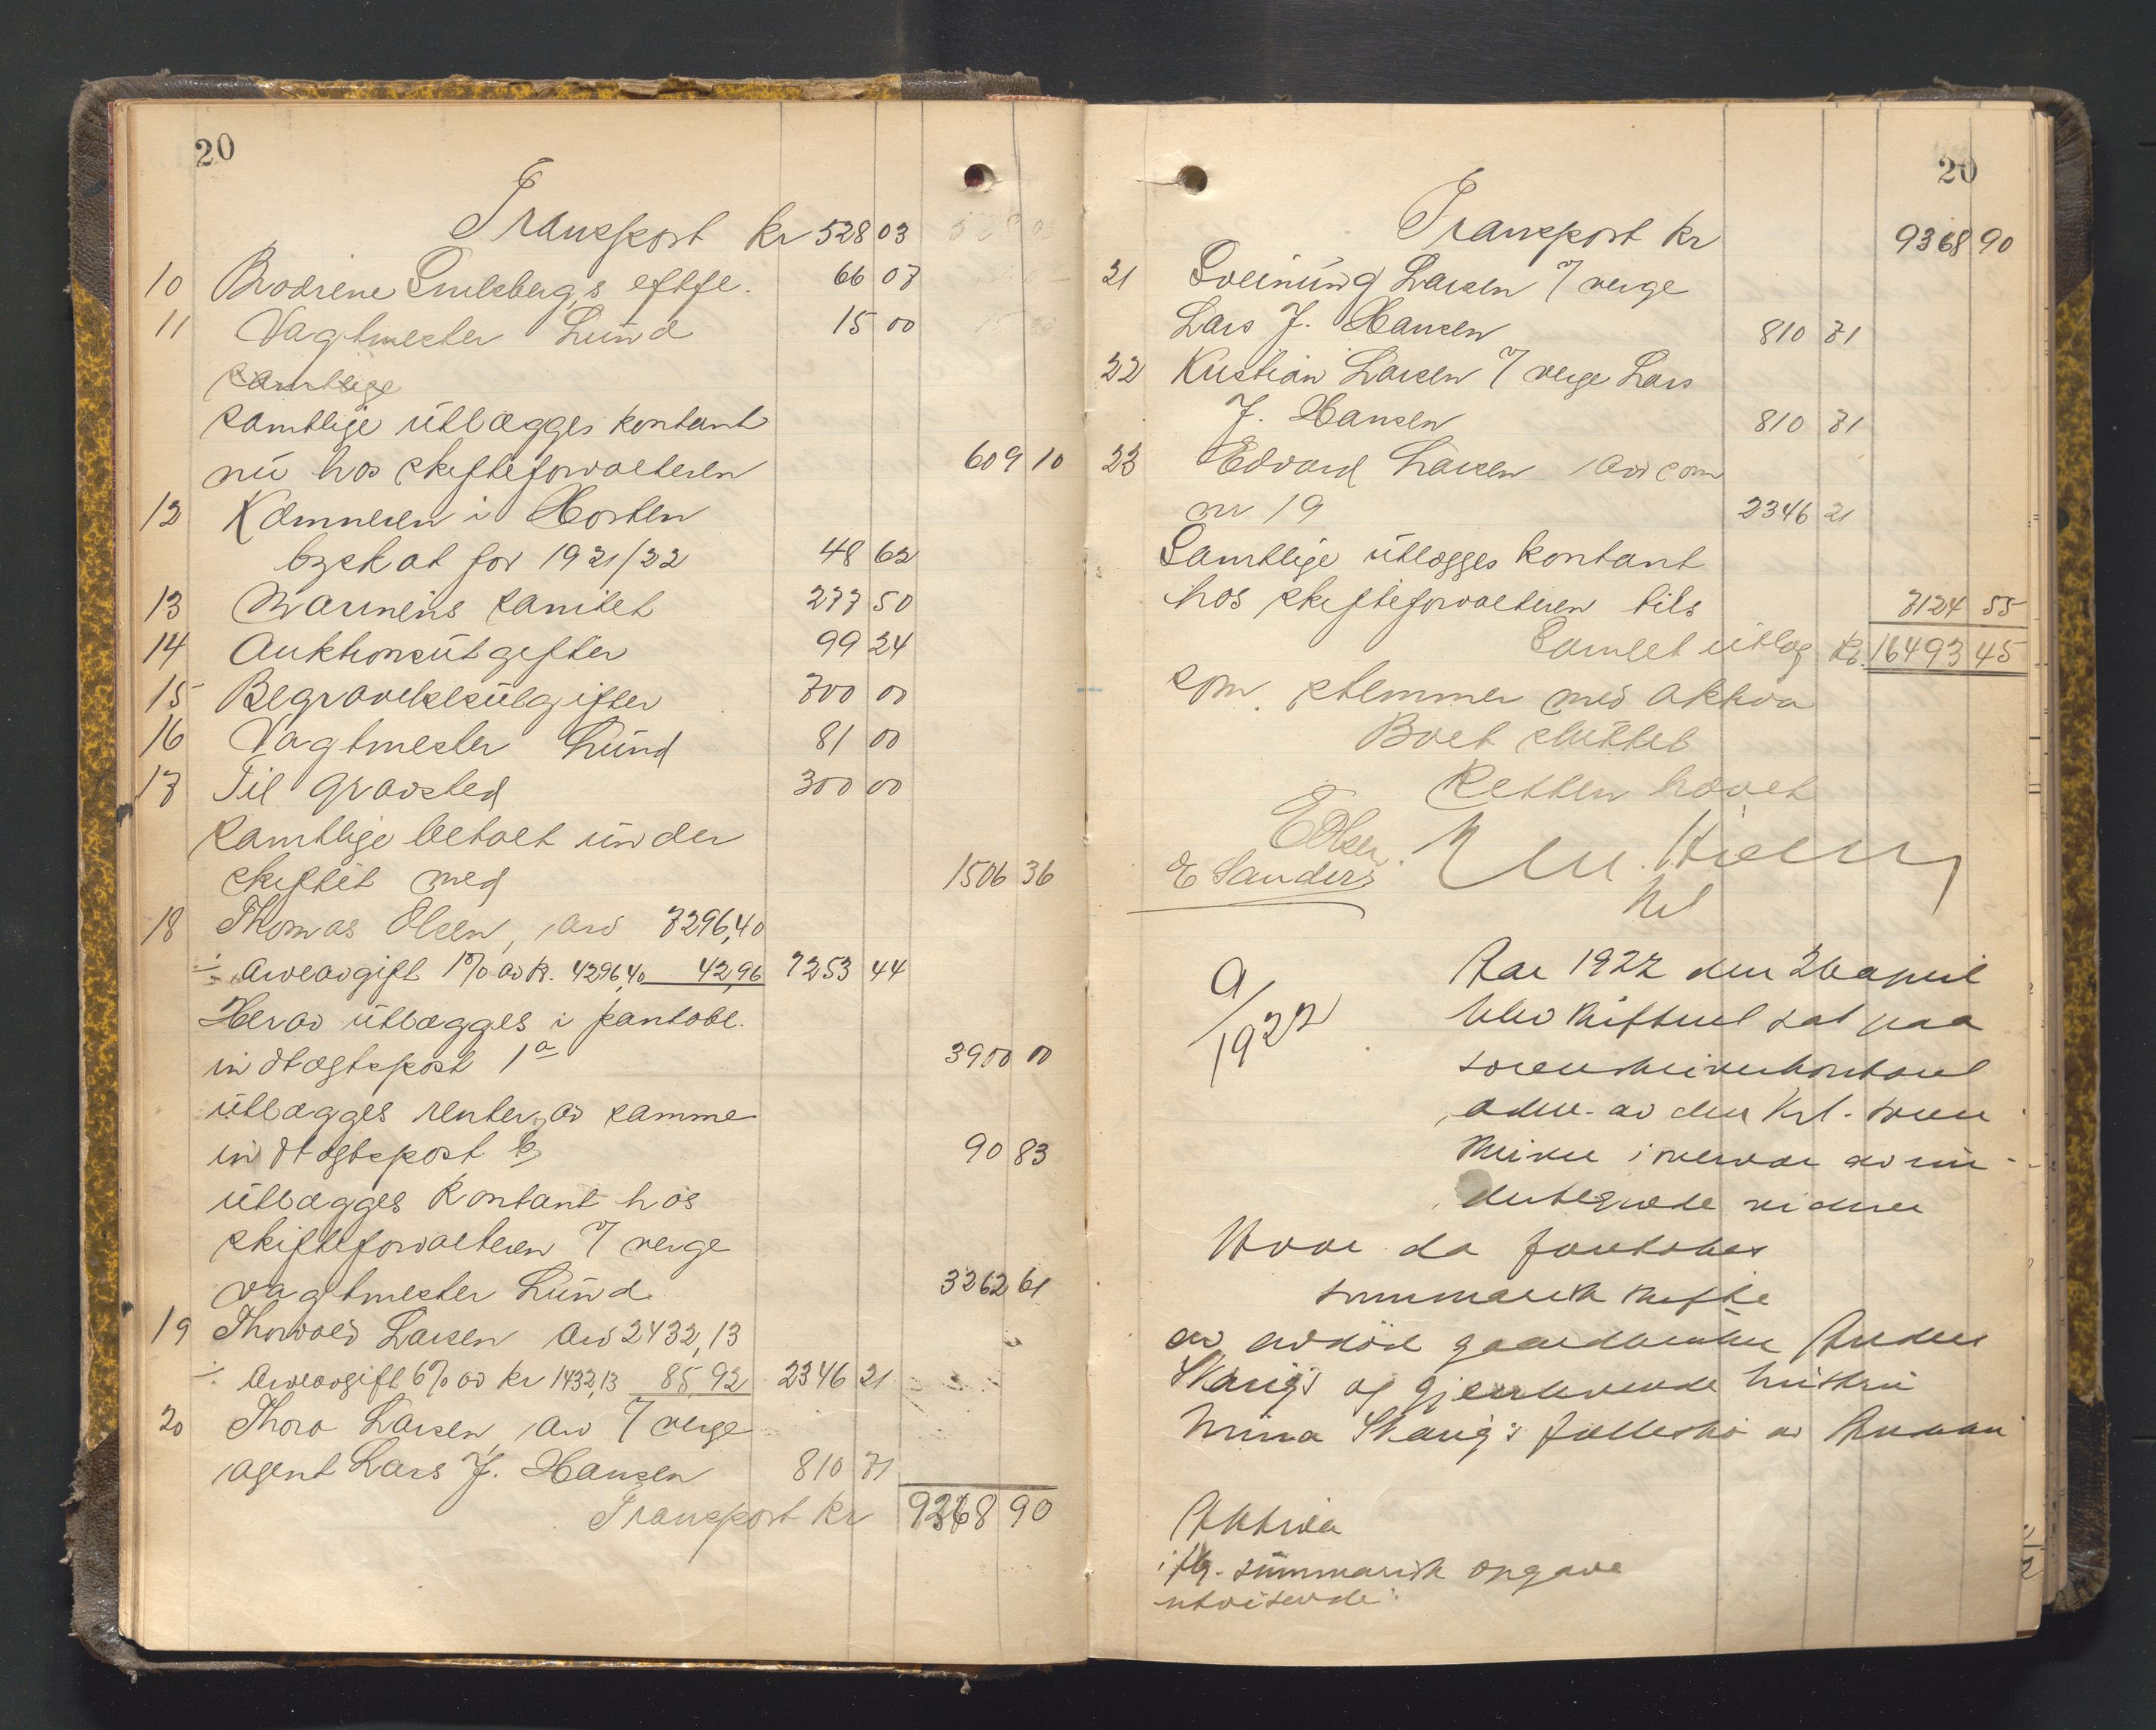 20
Transport kr 528 03
10 Brødrene Smelsberg,s eftfl. 66 07
11 Vagtmester Lund 15 00
samtlige
samtlige utlægges kontant
nu hos skifteforvalteren 609 10
12 Kæmneren i Horten
byskat for 1921/22 48 62
13 Marinens sanitet 277 50
14 Auktionsutgifter 99 24
15 Begravelsesutgifter 700 00
16 Vagtmester Lund 81 00
17 Til gravsted 300 00
samtlige betalt under
skiftet med 1506 36
18 Thomas Olsen, arv 7296,40
÷ Arveavgift 1% av kr. 4296,40 42,96 7253 44
Herav utlægges i pantobl.
indtægtspost 1a 3900 00
utlægges renter av samme
indtægtspost b, 90 83
utlægges kontant hos
skifteforvalteren v/ verge
vagtmester Lund 3262 61
19 Thorvald Larsen Arv 2432,13
÷ Arveavgift 6% av kr 1432,13 85,92 2346 21
20 Thora Larsen, arv v/ verge
agent Lars J. Hansen 810 71
Transport kr 9368 90
20
Transport kr 9368 90
21 Sveinung Larsen v/ verge
Lars J. Hansen 810 71
22 Kristian Larsen v/ verge Lars
J. Hansen 810 71
23 Edvard Larsen arv som
nr 19 2346 21
Samtlige utlægges kontant
hos skifteforvalteren tils 7124 55
Samlet utlæg kr. 16493 45
som stemmer med aktiva
Boet sluttet
Retten hævet
E Olsen.
E Sanders
kst
9/1922
Aar 1922 den 26 april
blev skifteret sat paa
sorenskriverkontoret
adm. av den kst. soren
skriver i overvær av un-
dertegnede vidner
Hvor da foretokes
summarisk skifte
av avdød gaardbruker Anders
Skaug's og gjenlevende hustru
Mina Skaug's fællesbo av
Aktiva
iflg. summarisk opgave
utvisende: